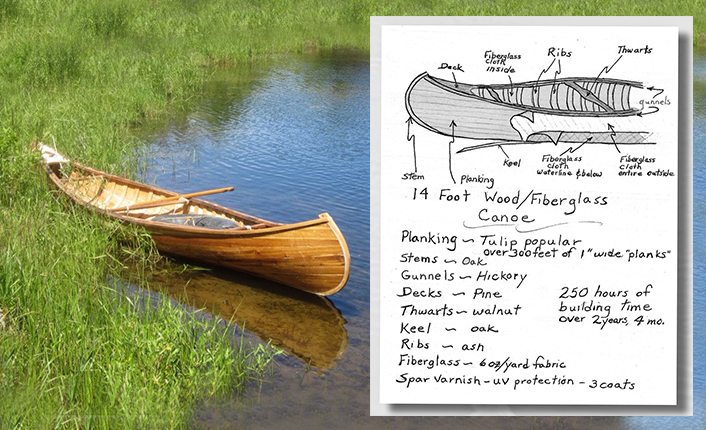 Deck
Fiberglass
cloth
inside
Ribs
Thwarts
gunnels
Stem
Planking
Keel
Fiberglass
cloth
waterline & below
Fiberglass
cloth
entire outside
14 Foot Wood/Fiberglass
Canoe
Planking ~ Tulip popular
over 300 feet of 1" wide "planks"
Stems ~ Oak
Gunnels ~ Hickory
Decks ~ Pine
Thwarts ~ walnut
Keel ~ oak
Ribs ~ ash
250 hours of
building time
over 2 years, 4 mo.
Fiberglass ~ 6 oz/yard fabric
Spar Varnish - uv protection - 3 coats